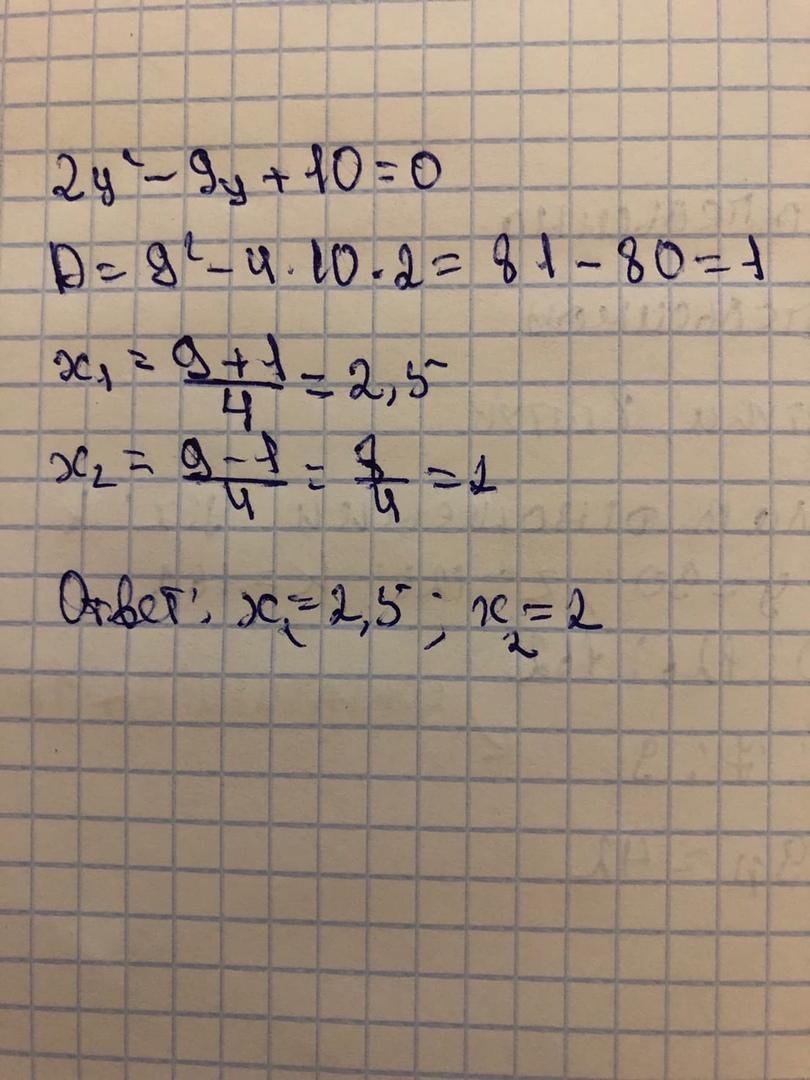 2y² - 9y + 10 = 0
D = 9² - 4 · 10 · 2 = 81 - 80 = 1
x₁ = (9 + 1)/4 = 2,5
x₂ = (9 - 1)/4 = 8/4 = 2
Ответ: x₁ = 2,5 ; x₂ = 2